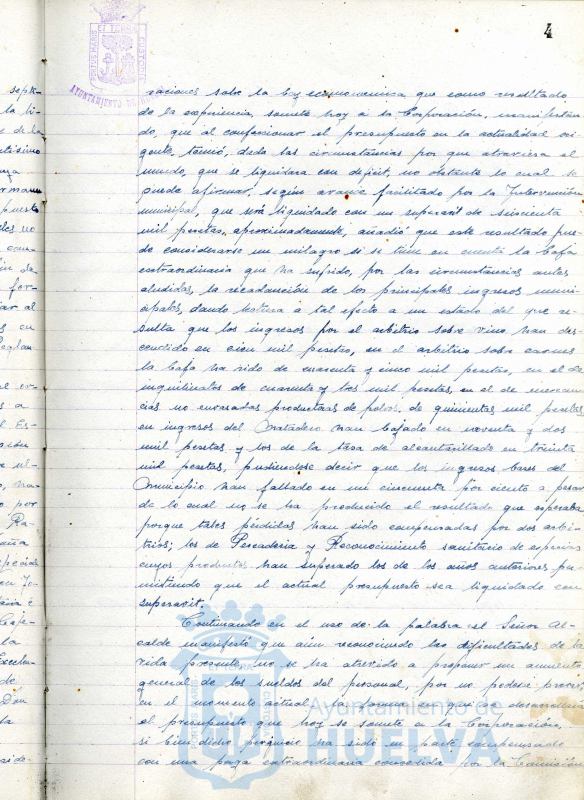 4
PORTUS MARIS ET TERRAE CUSTODIA
AYUNTAMIENTO DE HU
raciones sobre la Ley economonica que como resultado
de la experiencia, somete hoy a la Corporación, manifestan
do, que al confeccionar el presupuesto en la actualidad vi-
gente, temió, dada las circunstancias por que atraviesa el
mundo, que se liquidara con déficit, no obstante lo cual se
puede afirmar, según avance facilitado por la Intervención
municipal, que será liquidado con un superavit de
mil pesetas, aproximadamente, añadió que este resultado pue-
de considerarse un milagro si se tiene en cuenta la baja
extraordinaria que ha sufrido, por las circunstancias antes
aludidas, la recaudanción de los principales ingresos muni-
cipales, dando lectura a tal efecto a un estado del que re-
sulta que los ingresos por el arbitrio sobre vino han des-
cendido en cien mil pesetas, en el arbitrio sobre carnes
la baja ha sido de cuarenta y cinco mil pesetas, en el de
inquilinatos de cuarenta y dos mil pesetas, en el de mercan-
cias no envasadas productoras de polvo, de quinientas mil pesetas
en ingresos del Matadero han bajado en noventa y dos
mil pesetas y los de la tasa de alcantarillado en treinta
mil pesetas, pudiendose decir que los ingresos bases del
Municipio han fallado en un cincuenta por ciento a pesar
de lo cual no se ha producido el resultado que esperaba
porque tales pérdidas han sido compensadas por dos arbi-
trios; los de Pescaderia y Reconocimiento sanitario de especies
cuyos productos han superado los de los años anteriores per-
mitiendo que el actual presupuesto sea liquidado con
superavit.
Continuando en el uso de la palabra el Señor Al-
calde manifestó que aún reconociendo las dificultades de la
vida presente, no se ha atrevido a proponer un aumento
general de los sueldos del personal, por no poderse prever
en el momento actual, la forma en que se desarrollará
el presupuesto que hoy se somete a la Corporación,
si bien dicho perjuicio ha sido en parte compensado
con una paga extraordinaria concedida por la Comisión
Ayuntamiento de
HUELVA